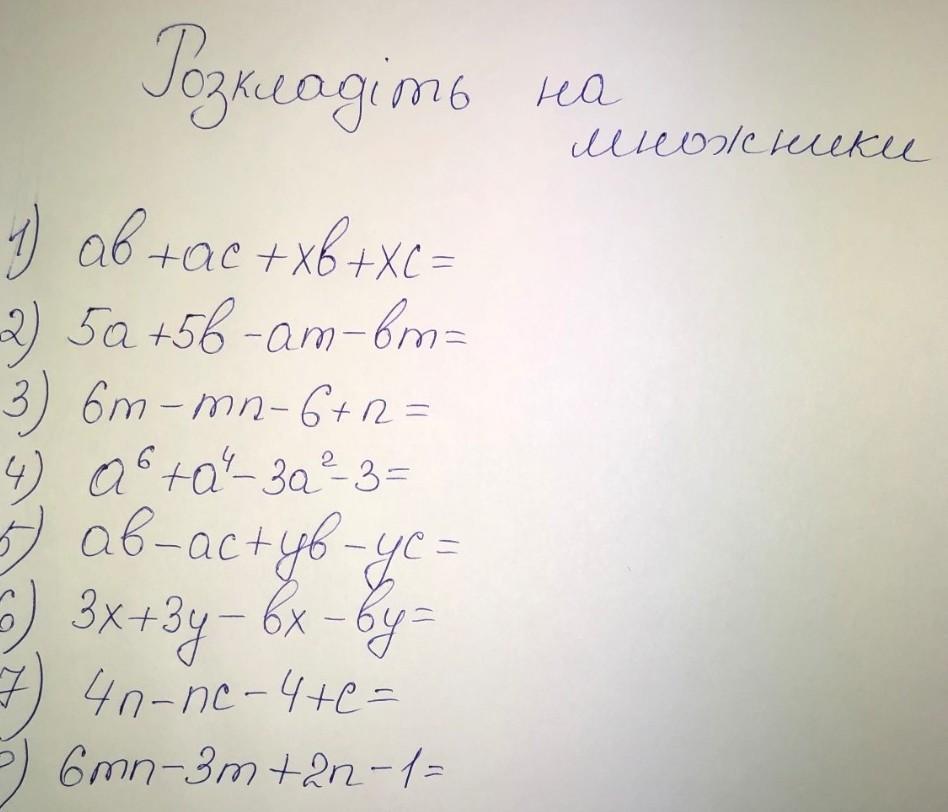 Розкладіть на
множники
1) ab + ac + xb + xc =
2) 5a + 5b - am - bm =
3) 6m - mn - 6 + n =
4) a⁶ + a⁴ - 3a² - 3 =
5) ab - ac + yb - yc =
6) 3x + 3y - bx - by =
7) 4n - nc - 4 + c =
8) 6mn - 3m + 2n - 1 =